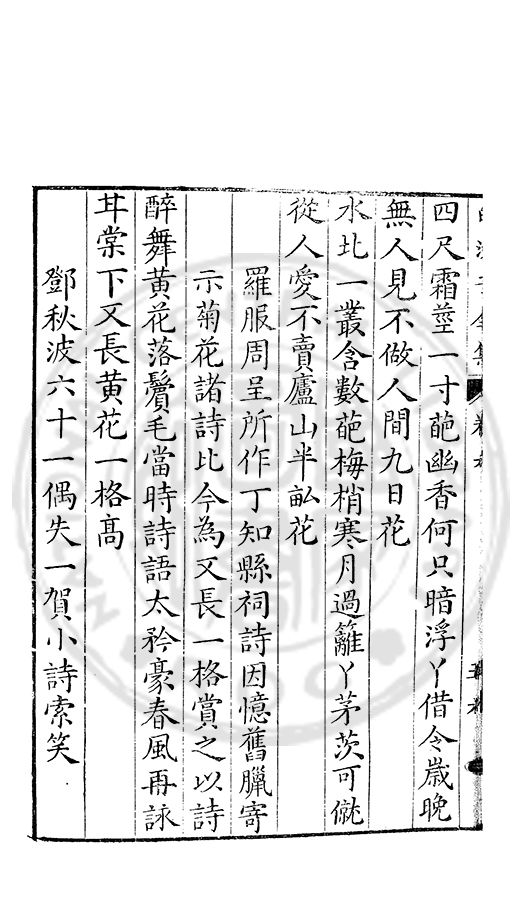 四尺霜莖一寸葩幽香何只暗浮丫借令嵗晚
無人見不做人間九日花
水北一叢含數葩梅梢寒月過籬丫茅茨可僦
從人愛不賣廬山半畝花
羅服周呈所作丁知縣祠詩因憶舊臘寄
示菊花諸詩比今為又長一格賞之以詩
醉舞黄花落鬢毛當時詩語太矜豪春風再詠
甘棠下又長黄花一格高
鄧秋波六十一偶失一賀小詩索笑